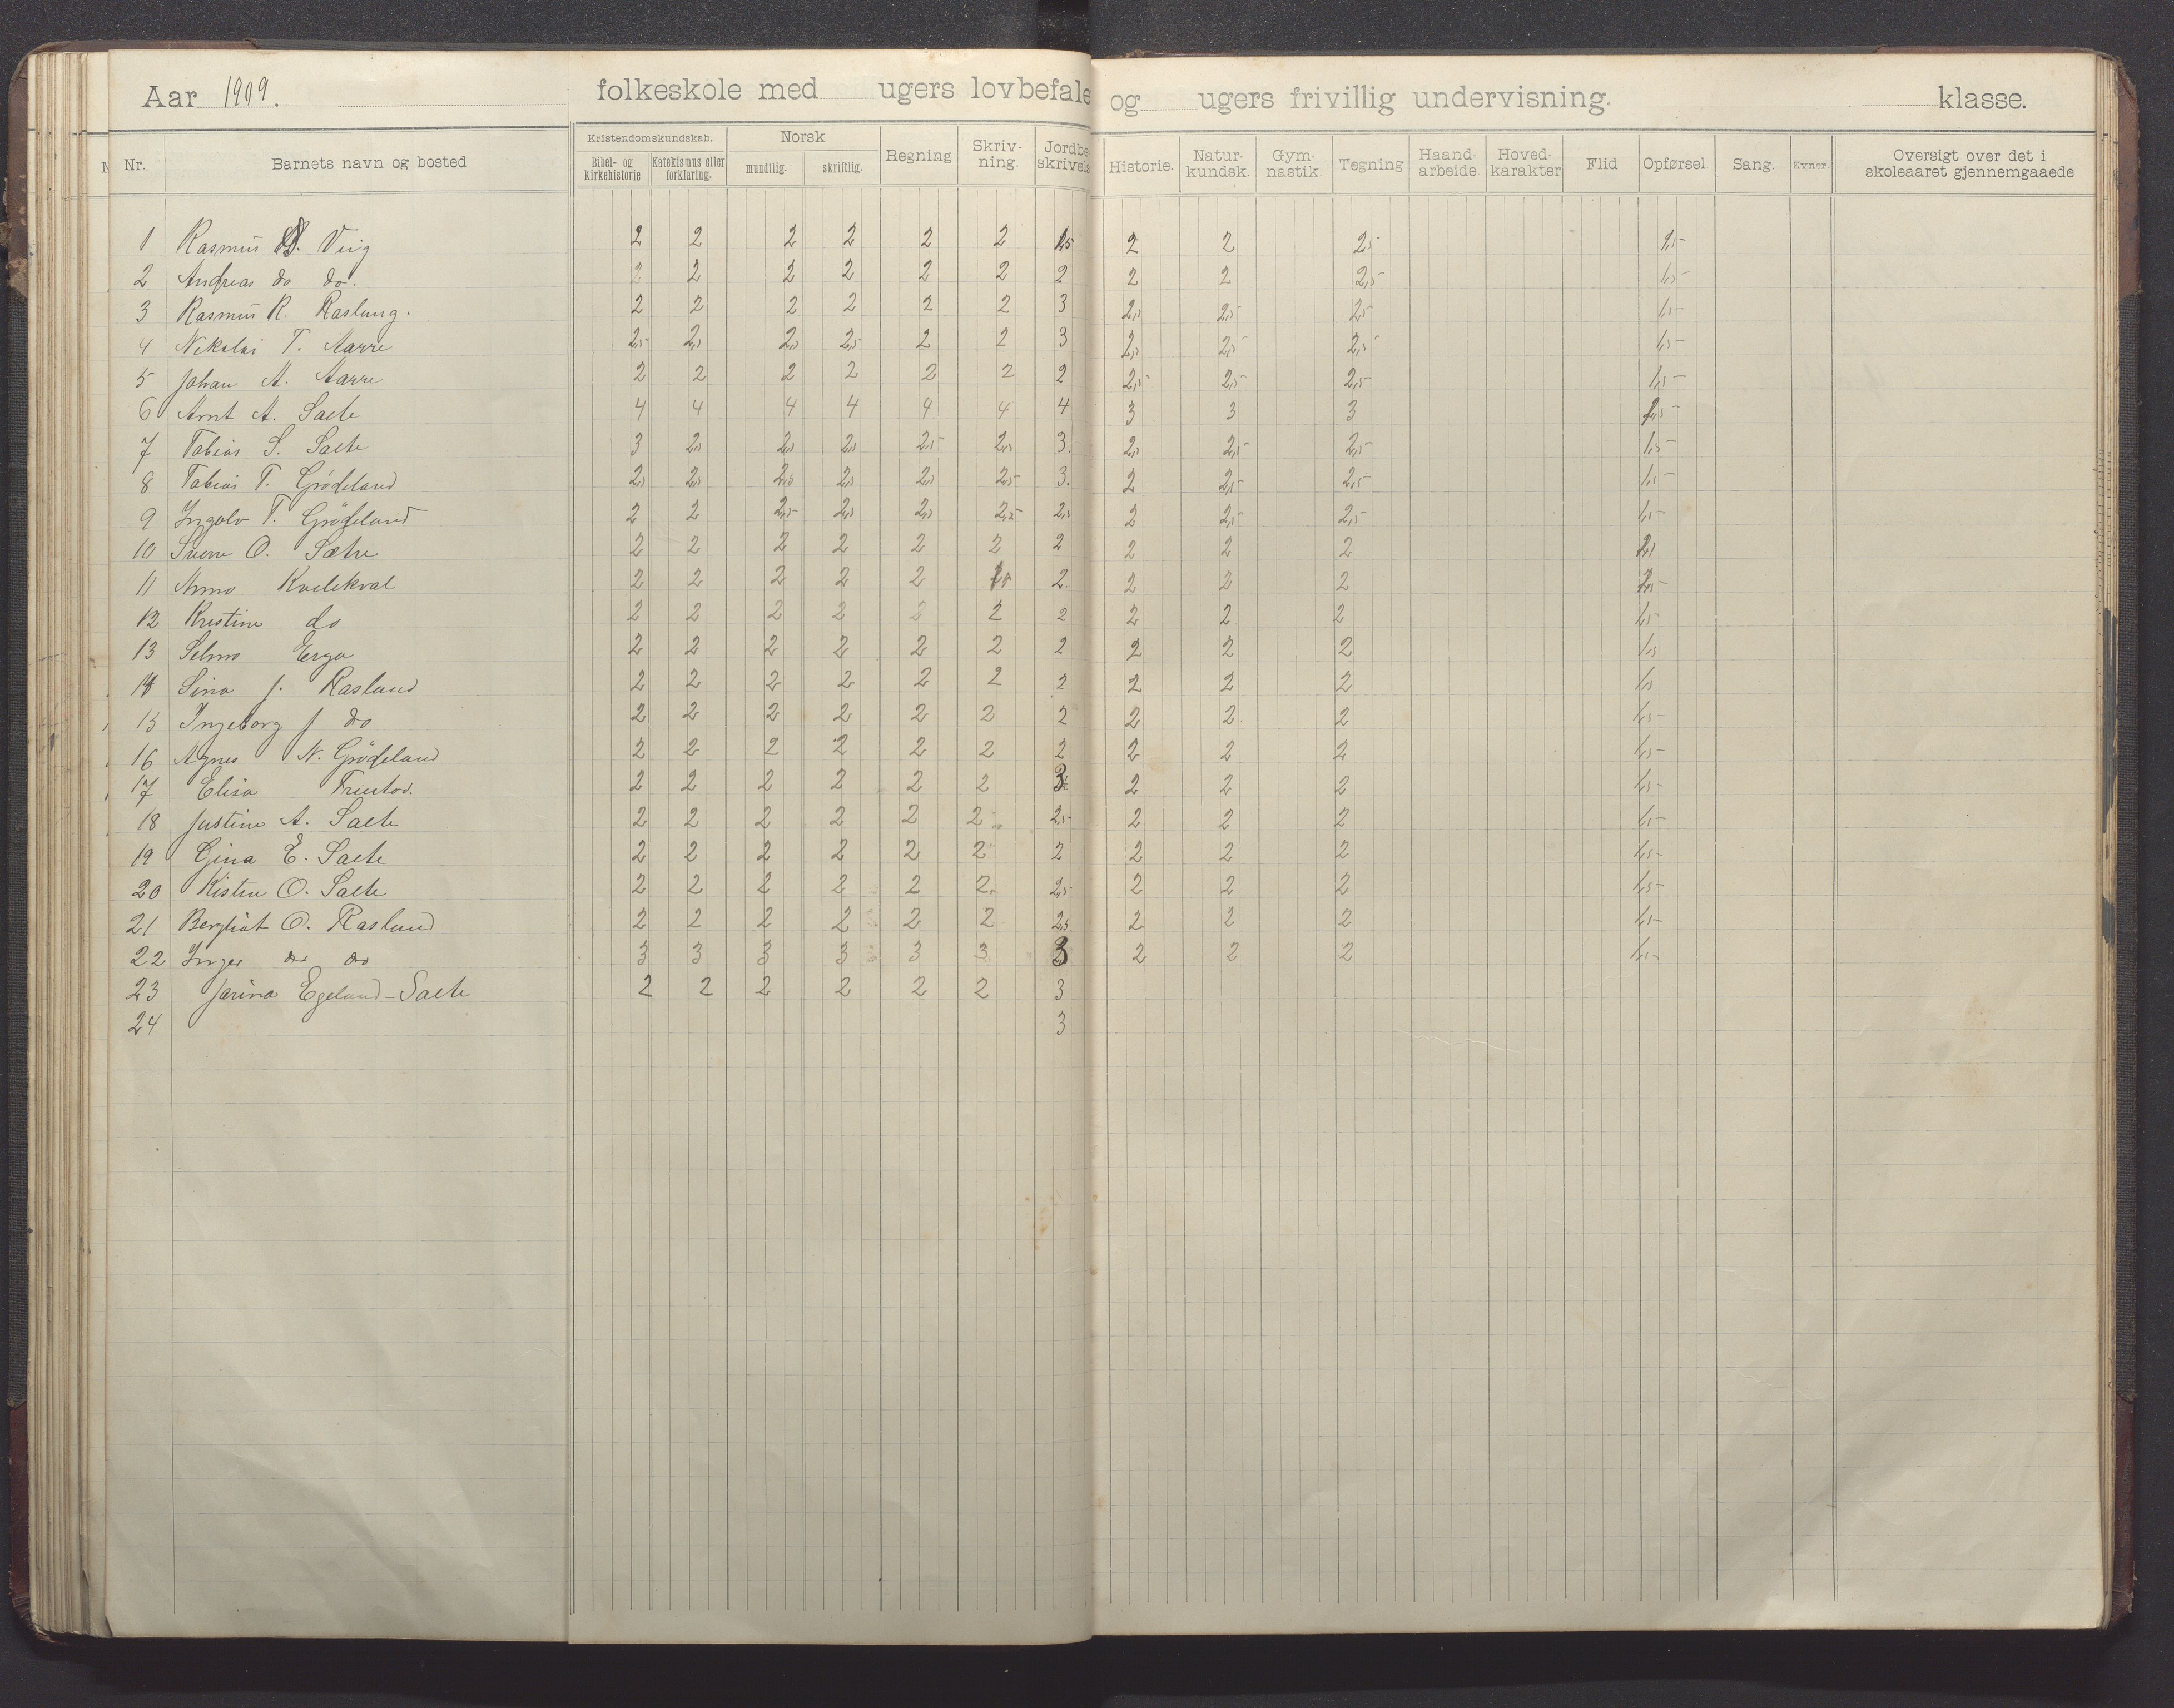 Aar 1909. folkeskole med ugers lovbefale og ugers frivillig undervisning. klasse.
Kristendomskundskab. Norsk
Nr. Barnets navn og bosted Bibel- og kirkehistorie Katekismus eller forklaring. mundtlig. skriftlig. Regning Skriv-ning. Jordbe skrivels Historie. Natur-kundsk. Gym-nastik Tegning Haand-arbeide Hoved-karakter Flid Opførsel Sang. Evner Oversigt over det i skoleaaret gjennemgaaede
1 Rasmus Vig 2 2 2 2 2 2 1,5 2 2 2,5 1,5
2 Andreas do do. 2 2 2 2 2 2 2 2 2 2,5 1,5
3 Rasmus R. 2 2 2 2 2 2 3 2,5 2,5 2,5 1,5
4 Nikolai T. Aarre 2,5 2,5 2,5 2,5 2 2 3 2,5 2,5 2,5 1,5
5 Johan A. Aarre 2 2 2 2 2 2 2 2,5 2,5 2,5 1,5
6 Arnt A. Salte 4 4 4 4 4 4 4 3 3 3
7 Tobias S. Salte 3 2,5 2,5 2,5 2,5 2,5 3. 2,5 2,5 2,5 1,5
8 Tobias T. Grødeland 2,5 2,5 2,5 2,5 2,5 2,5 3. 2 2,5 2,5 1,5
9 Ingolv T. Grødeland 2 2 2,5 2,5 2,5 2,5 2,5 2 2,5 2,5 1,5
10 Sverre O. Sætre 2 2 2 2 2 2 2 2 2 2
11 Anna Kvilekval 2 2 2 2 2 1,5 2. 2 2 2
12 Kristine do 2 2 2 2 2 2 2 2 2 2 1,5
13 Selma Erga 2 2 2 2 2 2 2 2 2 2 1,5
14 Sina J. Rasland 2 2 2 2 2 2 2 2 2 2 1,5
15 Ingeborg J do 2 2 2 2 2 2 2 2 2 2 1,5
16 Agnes N. Grødeland 2 2 2 2 2 2 2 2 2 2 1,5
17 Elisa 2 2 2 2 2 2 3 2 2 2 1,5
18 Justine A. Salte 2 2 2 2 2 2 2,5 2 2 2 1,5
19 Gina E. Salte 2 2 2 2 2 2 2 2 2 2 1,5
20 Kistin O. Salte 2 2 2 2 2 2 2,5 2 2 2 1,5
21 Bergliot O. Rasland 2 2 2 2 2 2 2,5 2 2 2 1,5
22 Inger do do 3 3 3 3 3 3 3 2 2 2 1,5
23 Jarina Egeland-Salte 2 2 2 2 2 2 3
24 3